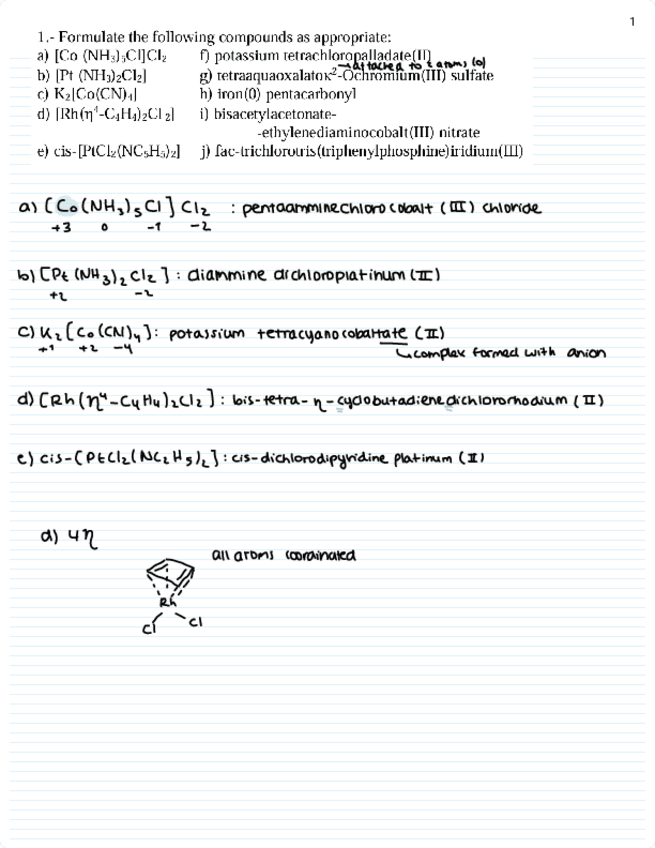 1
1.- Formulate the following compounds as appropriate:
a) [Co (NH₃)₅Cl]Cl₂ f) potassium tetrachloropalladate(II)
→attached to 2 atoms (O)
b) [Pt (NH₃)₂Cl₂] g) tetraaquaoxalatoκ²-Ochromium(III) sulfate
c) K₂[Co(CN)₄] h) iron(0) pentacarbonyl
d) [Rh(η⁴-C₄H₄)₂Cl₂] i) bisacetylacetonate-
-ethylenediaminocobalt(III) nitrate
e) cis-[PtCl₂(NC₅H₅)₂] j) fac-trichlorotris(triphenylphosphine)iridium(III)
a) [Co(NH₃)₅Cl] Cl₂ : pentaamminechloro cobalt (III) chloride
+3 0 -1 -2
b) [Pt (NH₃)₂ Cl₂] : diammine dichloroplatinum (II)
+2 -2
c) K₂ [Co(CN)₄] : potassium tetracyanocobaltate (II)
+1 +2 -4
↳complex formed with anion
d) [Rh(η⁴-C₄H₄)₂Cl₂] : bis-tetra-η-cyclobutadienedichlororhodium (II)
e) cis-[PtCl₂(NC₂H₅)₂] : cis-dichlorodipyridine platinum (II)
d) 4η
all atoms coordinated
Rh
Cl Cl